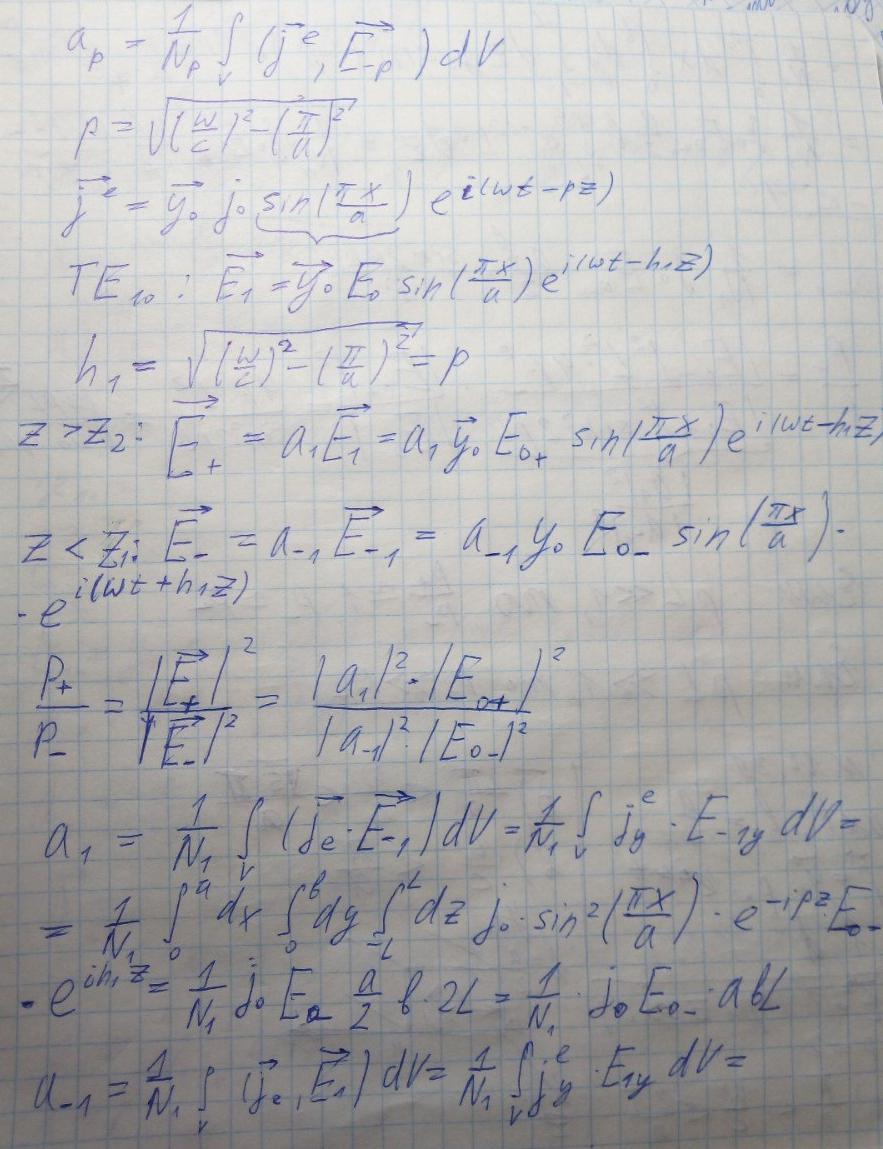 a_p = 1/N_p ∫_V (j⃗^e, E⃗_{-p}) dV
p = √((ω/c)² - (π/a)²)
j⃗^e = y⃗₀ j₀ sin(πx/a) e^{i(ωt-pz)}
TE₁₀: E⃗₁ = y⃗₀ E₀ sin(πx/a) e^{i(ωt-h₁z)}
h₁ = √((ω/c)² - (π/a)²) = p
z > z₂: E⃗₊ = a₁E⃗₁ = a₁ y⃗₀ E₀₊ sin(πx/a) e^{i(ωt-h₁z)}
z < z₁: E⃗₋ = a₋₁E⃗₋₁ = a₋₁ y₀ E₀₋ sin(πx/a) ·
· e^{i(ωt+h₁z)}
P₊/P₋ = |E⃗₊|²/|E⃗₋|² = |a₁|²·|E₀₊|²/|a₋₁|²·|E₀₋|²
a₁ = 1/N₁ ∫_V (j⃗_e · E⃗₋₁) dV = 1/N₁ ∫_V j_y^e · E_{-1y} dV =
= 1/N₁ ∫₀^a dx ∫₀^b dy ∫_{-L}^L dz j₀ · sin²(πx/a) · e^{-ipz} E₀₋
· e^{ih₁z} = 1/N₁ j₀ E₀₋ a/2 b · 2L = 1/N₁ · j₀ E₀₋ · abL
a₋₁ = 1/N₁ ∫_V (j⃗_e, E⃗₁) dV = 1/N₁ ∫_V j_y^e · E_{1y} dV =